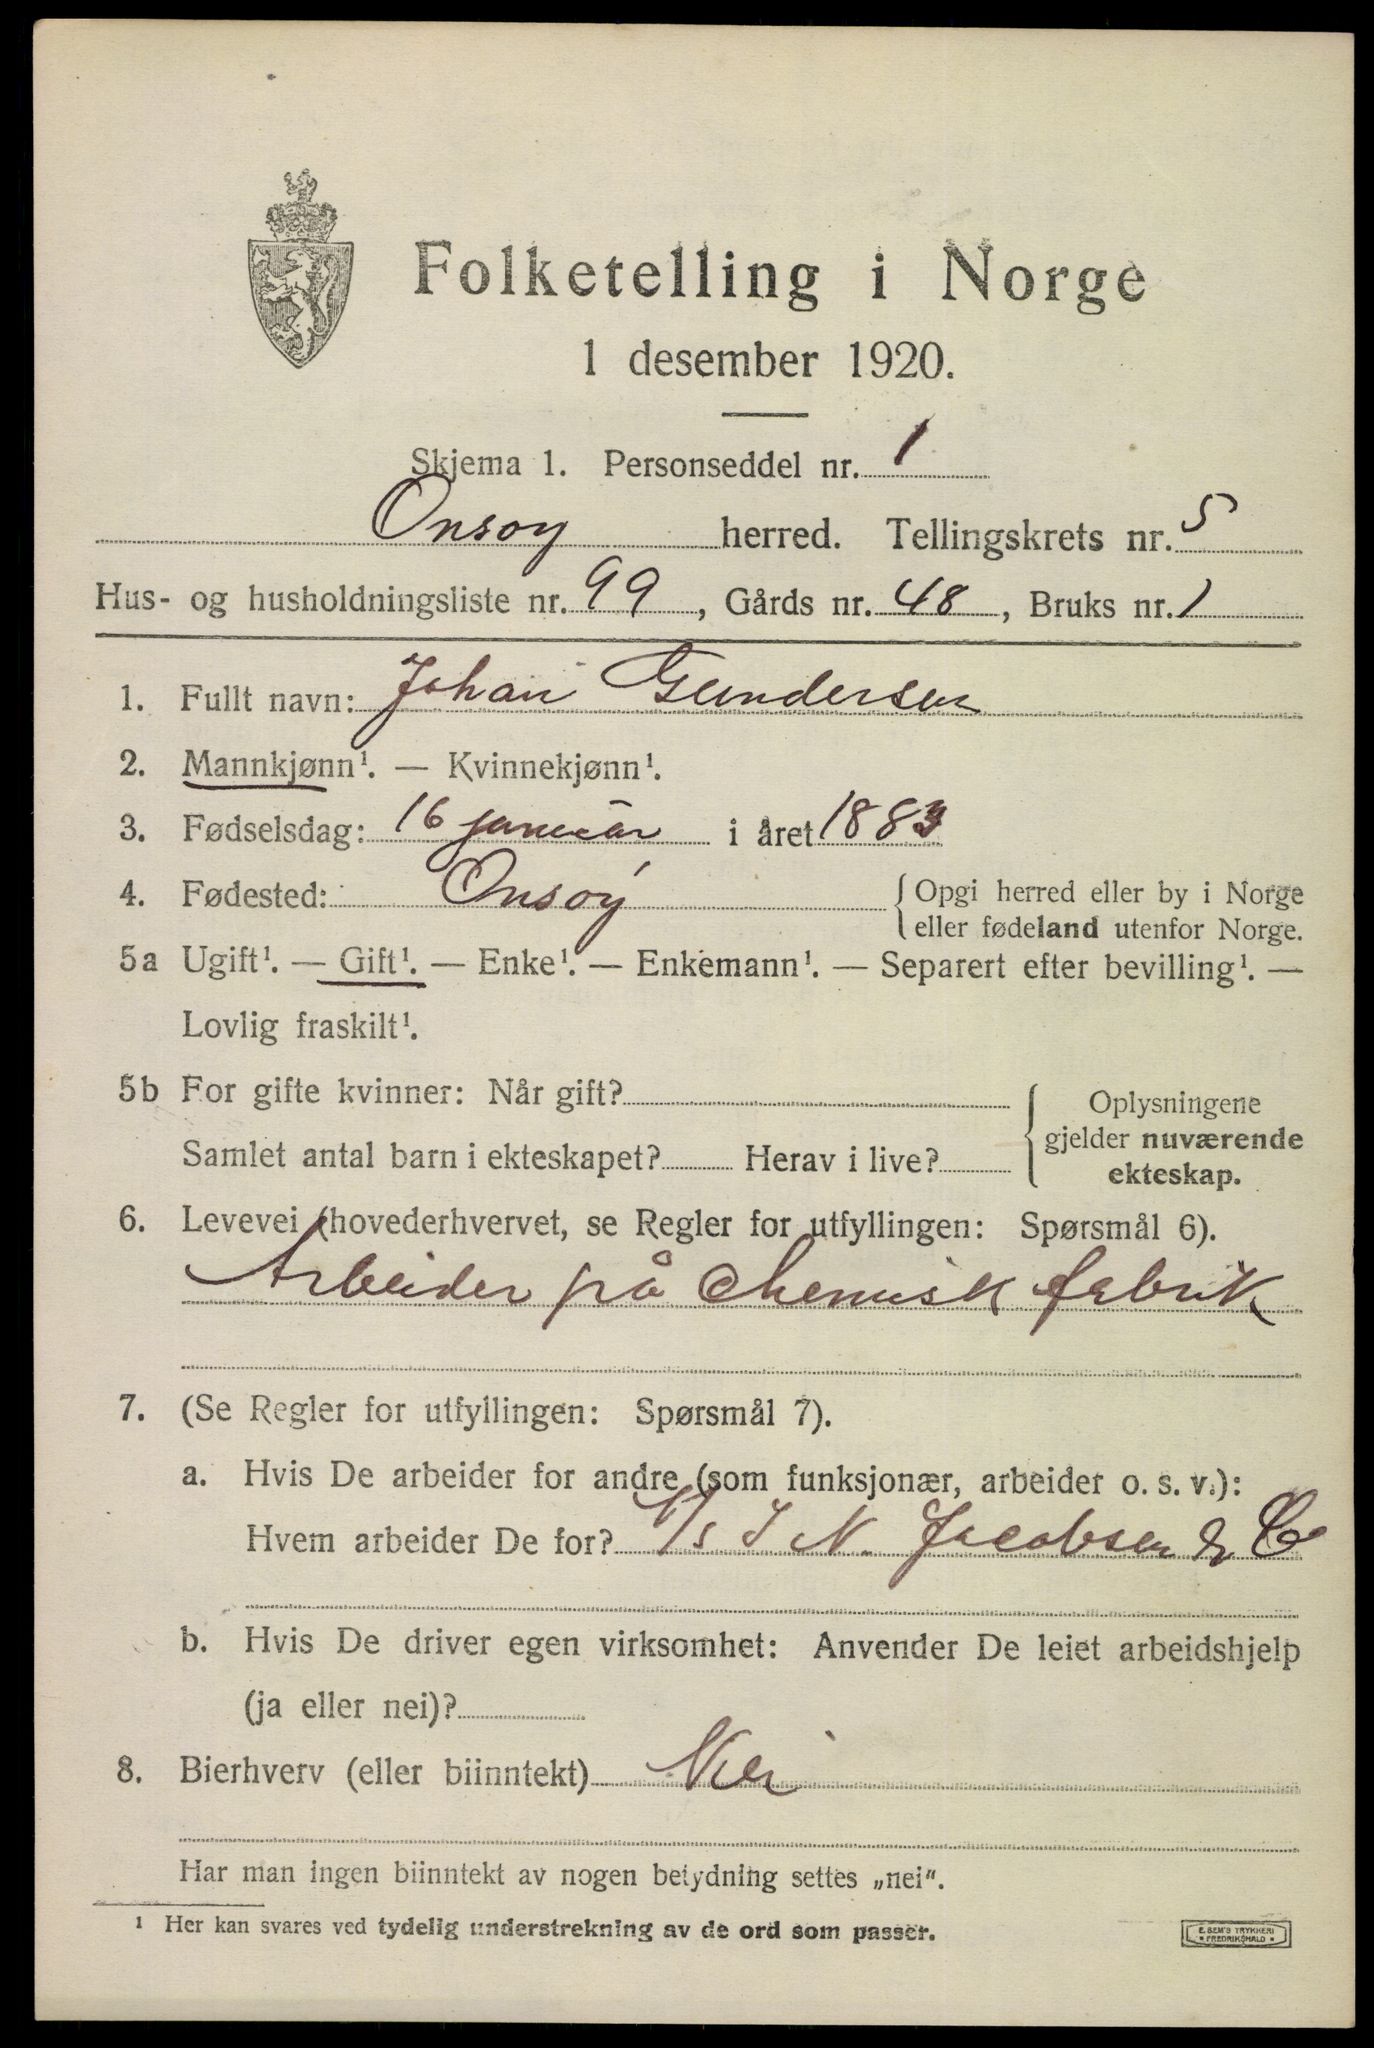 Folketelling i Norge
1 desember 1920.
Skjema 1. Personseddel nr. 1
Onsoy herred. Tellingskrets nr. 5
Hus- og husholdningsliste nr. 99, Gårds nr. 48, Bruks nr. 1
1. Fullt navn: Johan Gundersen
2. Mannkjønn¹. — Kvinnekjønn¹.
3. Fødselsdag: 16 januar i året 1883
4. Fødested: Onsoy { Opgi herred eller by i Norge
eller fødeland utenfor Norge.
5a Ugift¹. — Gift¹. — Enke¹. — Enkemann¹. — Separert efter bevilling¹. —
Lovlig fraskilt¹.
5b For gifte kvinner: Når gift?
Samlet antal barn i ekteskapet? Herav i live?
{ Oplysningene
gjelder nuværende
ekteskap.
6. Levevei (hovederhvervet, se Regler for utfyllingen: Spørsmål 6).
Arbeider på chemisk fabrik
7. (Se Regler for utfyllingen: Spørsmål 7).
a. Hvis De arbeider for andre (som funksjonær, arbeider o. s. v.):
Hvem arbeider De for? A/s I N. Jacobsen & Co
b. Hvis De driver egen virksomhet: Anvender De leiet arbeidshjelp
(ja eller nei)?
8. Bierhverv (eller biinntekt) Nei
Har man ingen biinntekt av nogen betydning settes „nei".
¹ Her kan svares ved tydelig understrekning av de ord som passer.
E. SEM'S TRYKKERI
FREDRIKSHALD